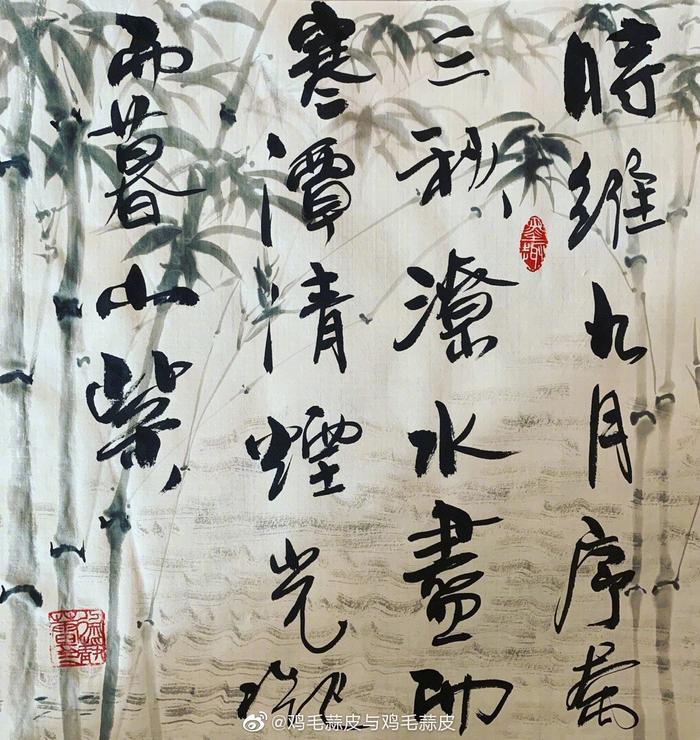 時維九月序屬
三秋潦水盡而
寒潭清煙光凝
而暮山紫
@鸡毛蒜皮与鸡毛蒜皮